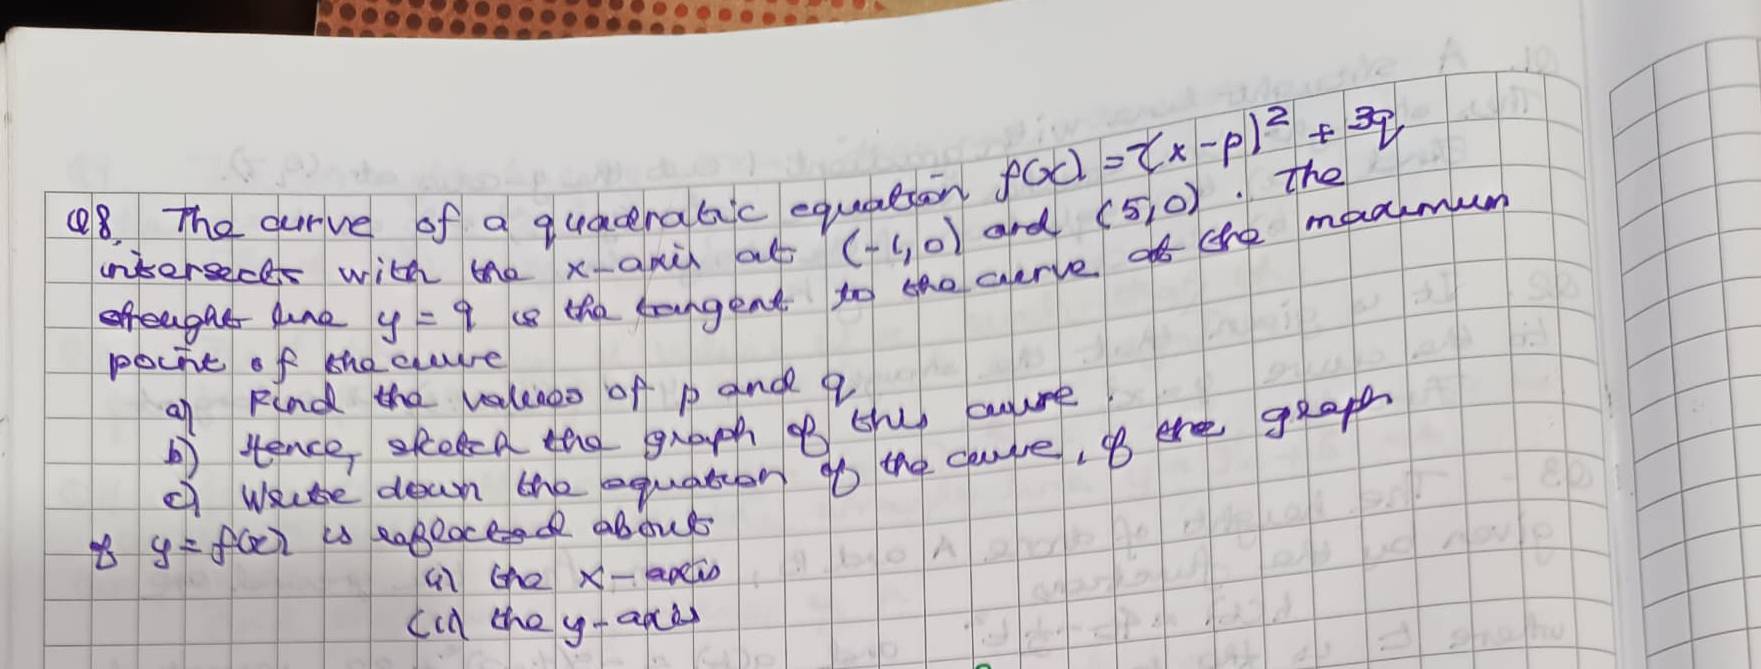 Q8. The curve of a quadratic equation f(x) = -(x-p)² + 3q
intersects with the x-axis at (-1,0) and (5,0). The
straight line y = 9 is the tangent to the curve at the maximum
point of the curve
a) Find the values of p and q
b) Hence, sketch the graph of this curve.
c) Write down the equation of the curve, if the graph
of y = f(x) is reflected about
(i) the x-axis
(ii) the y-axis